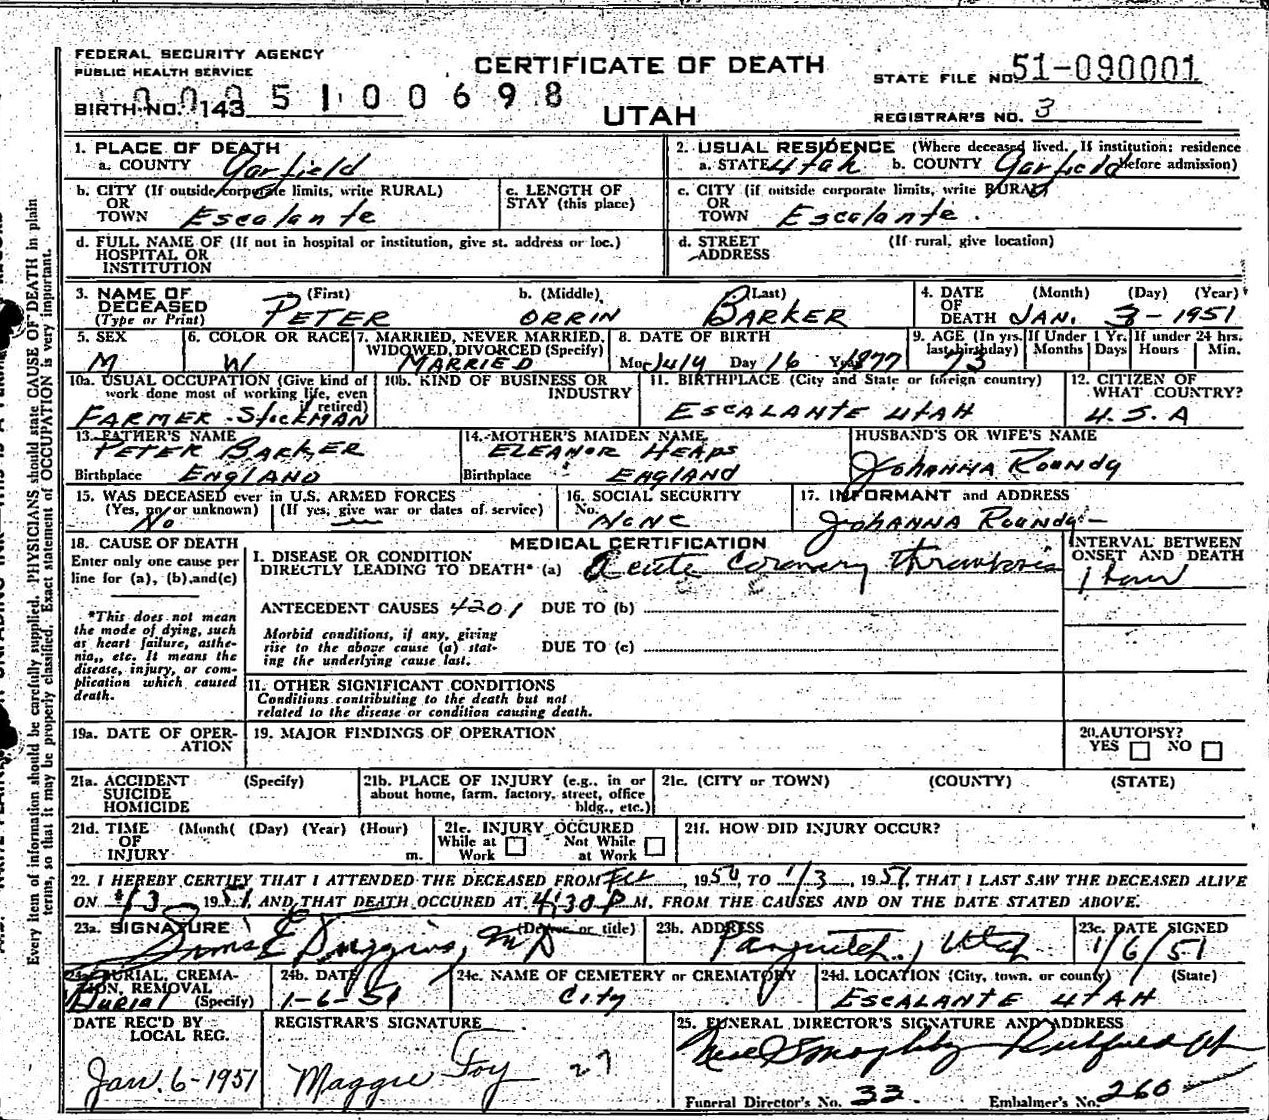 FEDERAL SECURITY AGENCY
PUBLIC HEALTH SERVICE
CERTIFICATE OF DEATH
STATE FILE NO. 51-090001
BIRTH NO. 143 5 1 0 0 6 9 8
UTAH
REGISTRAR'S NO. 3
1. PLACE OF DEATH
a. COUNTY Garfield
2. USUAL RESIDENCE (Where deceased lived. If institution: residence before admission)
a. STATE Utah b. COUNTY Garfield
b. CITY (If outside corporate limits, write RURAL)
OR
TOWN Escalante
c. LENGTH OF
STAY (this place)
c. CITY (if outside corporate limits, write RURAL)
OR
TOWN Escalante.
d. FULL NAME OF (If not in hospital or institution, give st. address or loc.)
HOSPITAL OR
INSTITUTION
d. STREET (If rural, give location)
ADDRESS
3. NAME OF DECEASED (Type or Print)
(First) b. (Middle) (Last)
PETER ORRIN BARKER
4. DATE OF DEATH (Month) (Day) (Year)
JAN. 3-1951
5. SEX
M
6. COLOR OR RACE
W
7. MARRIED, NEVER MARRIED,
WIDOWED, DIVORCED (Specify)
MARRIED
8. DATE OF BIRTH
Mo. July Day 16 Year 1877
9. AGE (In yrs. last birthday) 73
If Under 1 Yr. Months Days
If under 24 hrs. Hours Min.
10a. USUAL OCCUPATION (Give kind of
work done most of working life, even
if retired)
FARMER-Stockman
10b. KIND OF BUSINESS OR
INDUSTRY
11. BIRTHPLACE (City and State or foreign country)
ESCALANTE UTAH
12. CITIZEN OF
WHAT COUNTRY?
U.S.A
13. FATHER'S NAME
PETER BARKER
Birthplace ENGLAND
14. MOTHER'S MAIDEN NAME
ELEANOR HEAPS
Birthplace ENGLAND
HUSBAND'S OR WIFE'S NAME
JOHANNA ROUNDY
15. WAS DECEASED ever in U.S. ARMED FORCES
(Yes, no or unknown) (If yes, give war or dates of service)
No
16. SOCIAL SECURITY
No. NONE
17. INFORMANT and ADDRESS
JOHANNA ROUNDY-
18. CAUSE OF DEATH
Enter only one cause per
line for (a), (b), and (c)
*This does not mean
the mode of dying, such
as heart failure, asthe-
nia, etc. It means the
disease, injury, or com-
plication which caused
death.
MEDICAL CERTIFICATION
I. DISEASE OR CONDITION
DIRECTLY LEADING TO DEATH* (a) Acute Coronary thrombosis
INTERVAL BETWEEN
ONSET AND DEATH
1 hour
ANTECEDENT CAUSES 4201 DUE TO (b)
Morbid conditions, if any, giving
rise to the above cause (a) stat-
ing the underlying cause last.
DUE TO (c)
II. OTHER SIGNIFICANT CONDITIONS
Conditions contributing to the death but not
related to the disease or condition causing death.
19a. DATE OF OPER-
ATION
19. MAJOR FINDINGS OF OPERATION
20. AUTOPSY?
YES NO
21a. ACCIDENT (Specify)
SUICIDE
HOMICIDE
21b. PLACE OF INJURY (e.g., in or
about home, farm, factory, street, office
bldg., etc.)
21c. (CITY or TOWN) (COUNTY) (STATE)
21d. TIME (Month( (Day) (Year) (Hour)
OF
INJURY m.
21e. INJURY OCCURED
While at Work Not While at Work
21f. HOW DID INJURY OCCUR?
22. I HEREBY CERTIFY THAT I ATTENDED THE DECEASED FROM , 1950, TO 1/3, 1951, THAT I LAST SAW THE DECEASED ALIVE
ON 1/3 1951, AND THAT DEATH OCCURED AT 4:30 P M. FROM THE CAUSES AND ON THE DATE STATED ABOVE.
23a. SIGNATURE (Degree or title)
Sims E Duggins, MD
23b. ADDRESS
Panguitch, Utah
23c. DATE SIGNED
1/6/51
24a. BURIAL, CREMA-
TION, REMOVAL
Burial (Specify)
24b. DATE
1-6-51
24c. NAME OF CEMETERY or CREMATORY
City
24d. LOCATION (City, town, or county) (State)
ESCALANTE UTAH
DATE REC'D BY
LOCAL REG.
Jan. 6-1951
REGISTRAR'S SIGNATURE
Maggie Foy 27
25. FUNERAL DIRECTOR'S SIGNATURE AND ADDRESS
Funeral Director's No. 33. Embalmer's No. 260
Every item of information should be carefully supplied. PHYSICIANS should state CAUSE OF DEATH in plain
terms, so that it may be properly classified. Exact statement of OCCUPATION is very important.